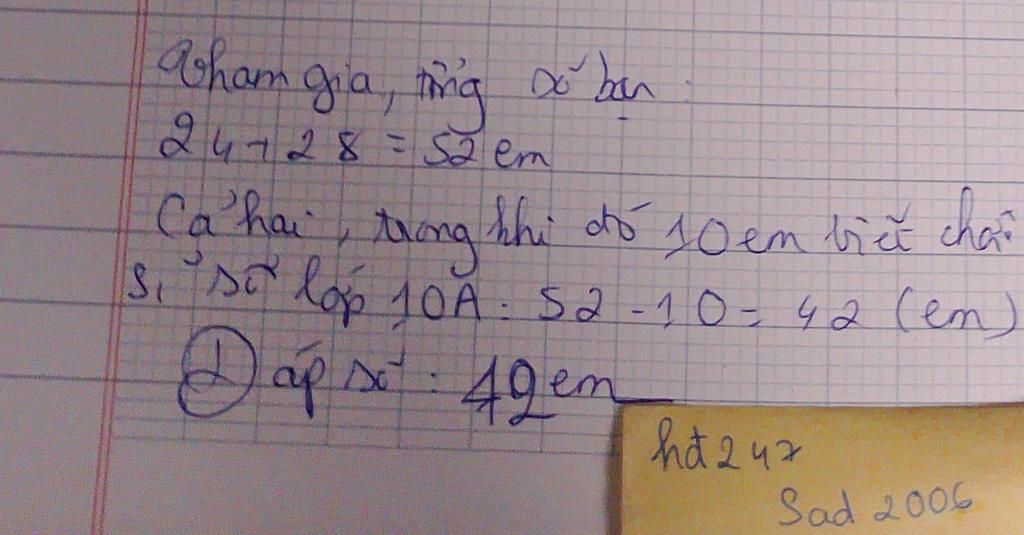 Tham gia, tổng số bạn:
24 + 28 = 52 em
Cả hai, trong khi đó 10 em biết chơi
Sỉ số lớp 10A: 52 - 10 = 42 (em)
Đáp số: 42 em
hđ247
Sad 2006